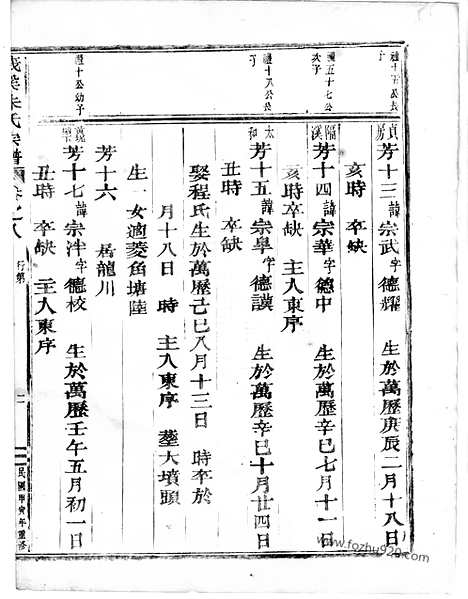 禮十五公長子
貞房
芳十三諱宗武字德耀 生於萬歷庚辰二月十八日
亥時 卒缺
禮五十七公次子
臨溪
芳十四諱宗華字德中 生於萬歷辛巳七月十一日
亥時卒缺 主入東序
禮十八公長子
太和
芳十五諱宗皐字德謨 生於萬歷辛巳十月廿四日
丑時 卒缺
娶程氏生於萬歷己巳八月十三日 時卒於
月十八日 時 主入東序 塟大墳頭
生一女適菱角塘陸
芳十六 居龍川
禮十公幼子
芳十七諱宗泮字德校 生於萬歷壬午五月初一日
丑時 卒缺 主入東序
朱氏宗譜 卷之八 行第 二 民國甲寅年重修
www.fozhu920.com